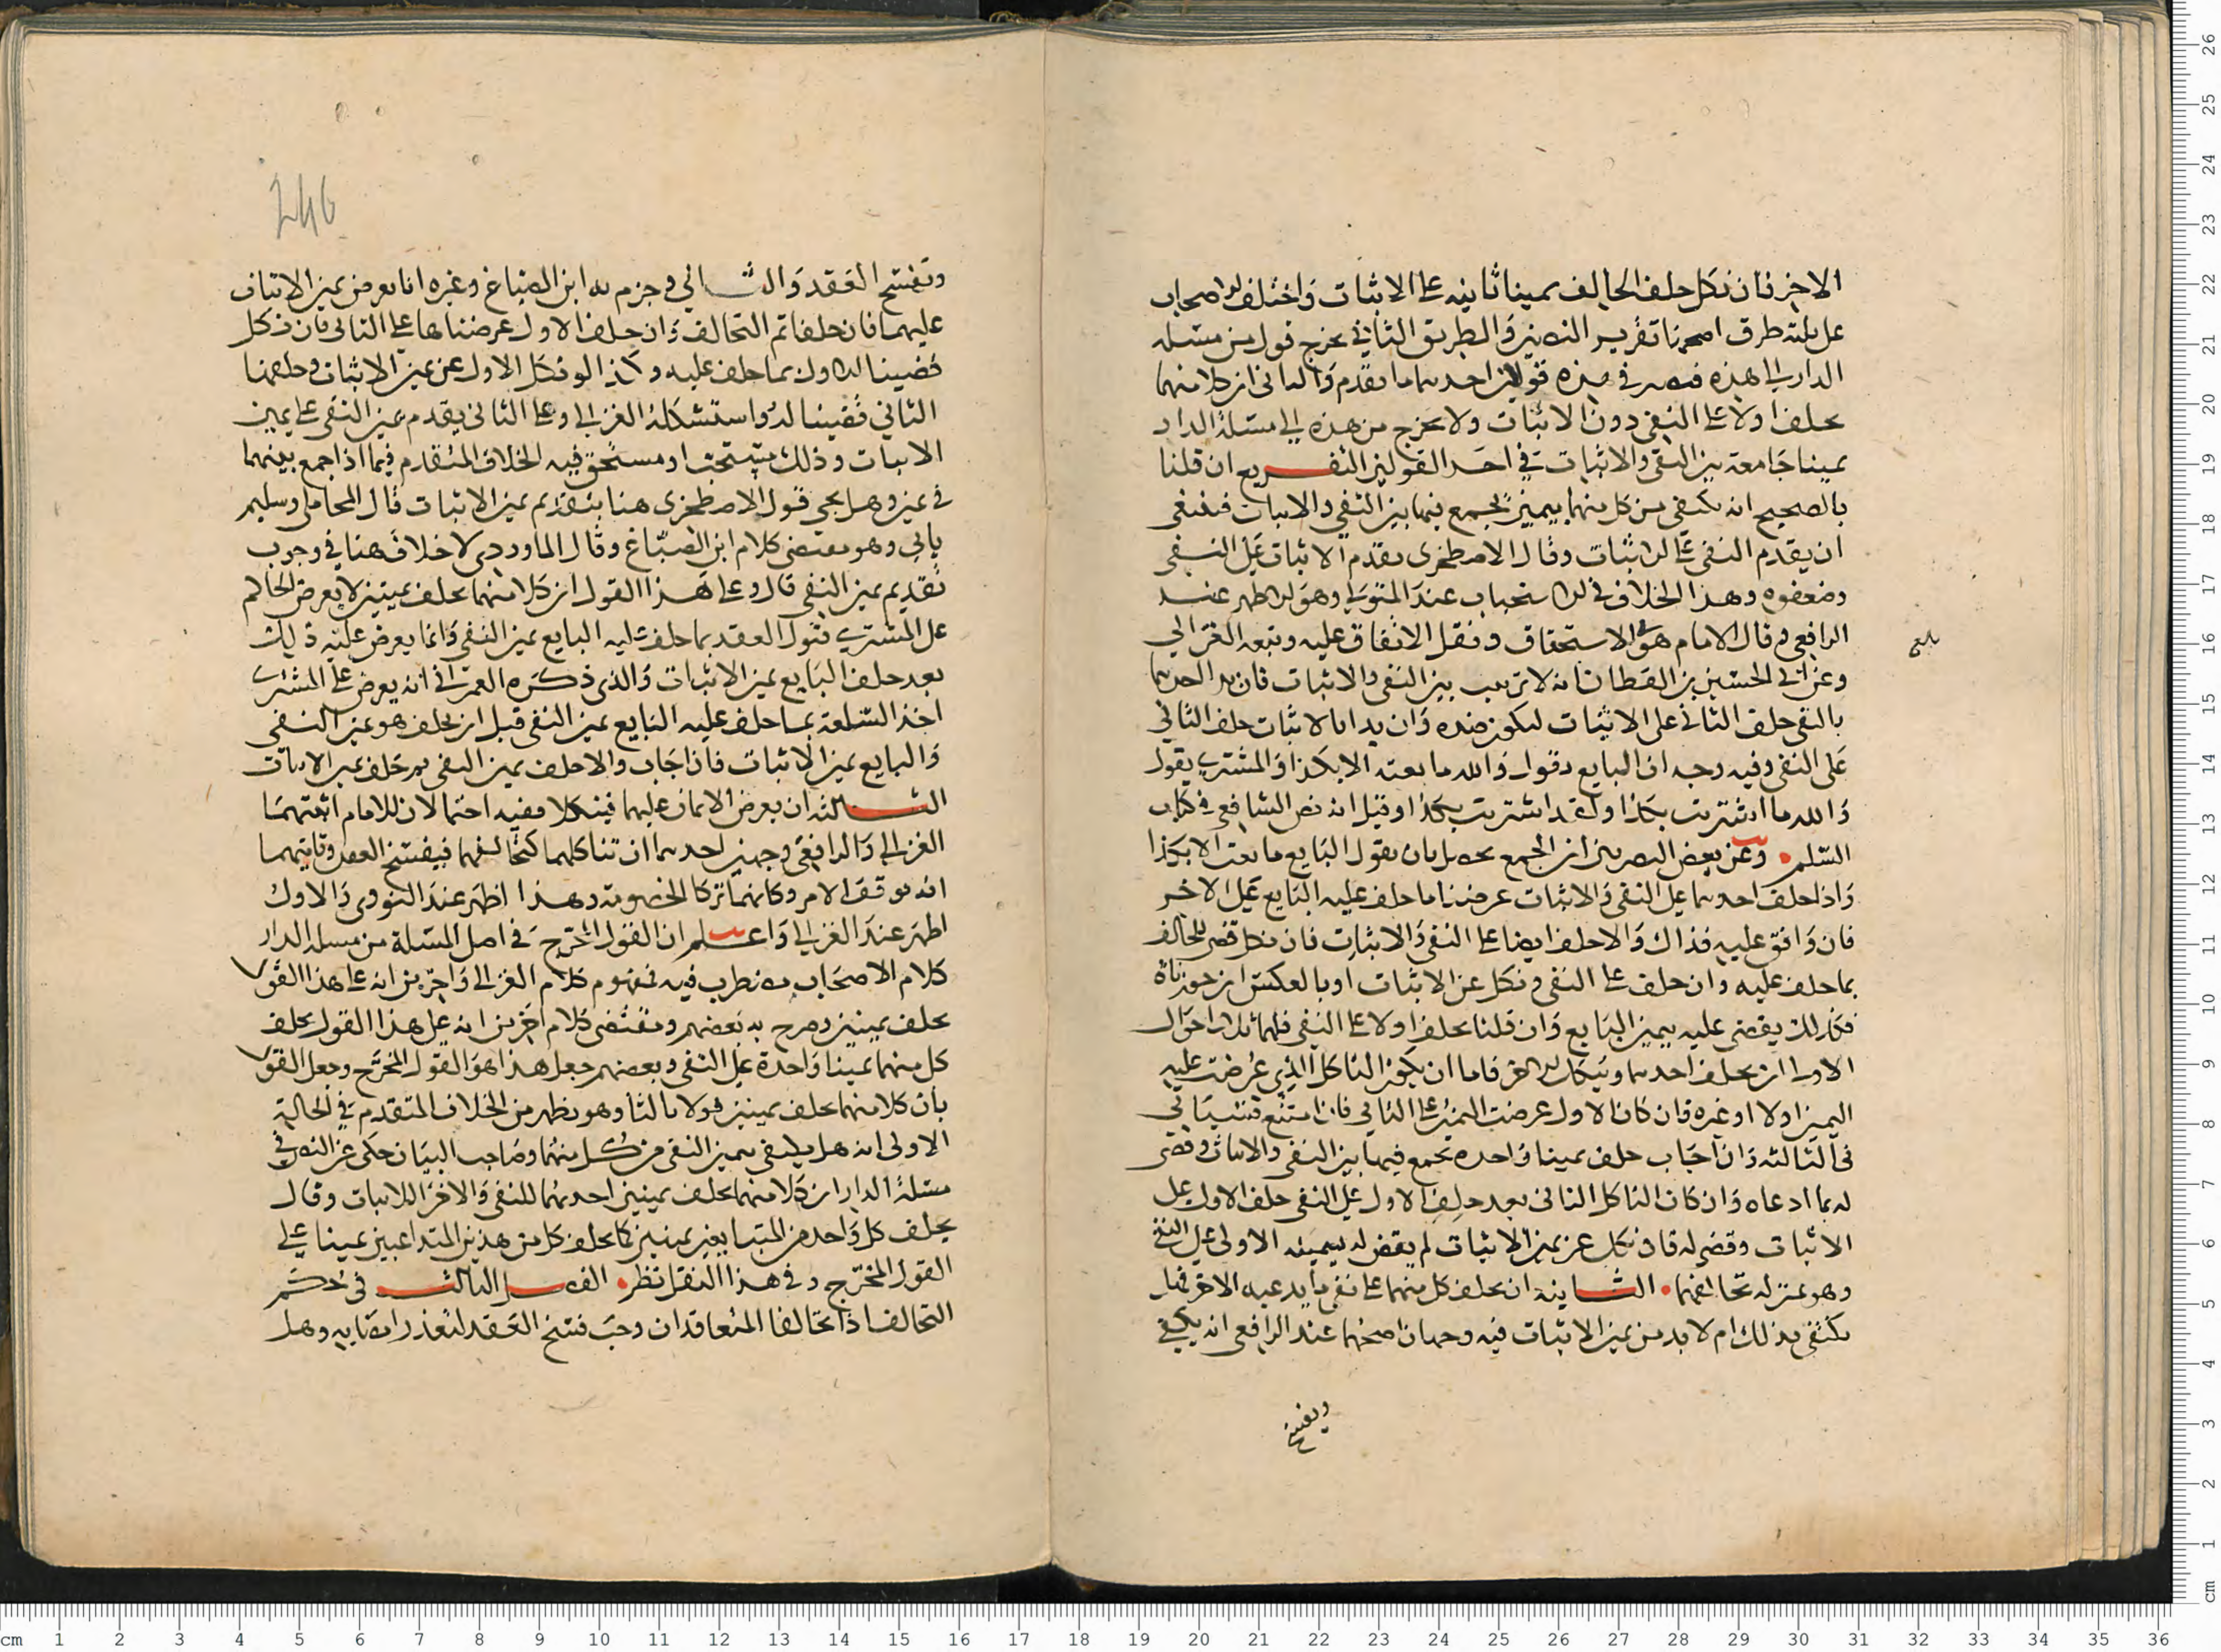 الاخر فان نكل حلف الحالف يمينا ثانيه على الاثبات واختلف الاصحاب
على ثلثة طرق اصحها تقرير النصين والطريق الثاني يخرج قول من مسئلة
الدار الى هذه فيصير في هذه قولان احدهما ما تقدم والثاني ان كلا منهما
يحلف اولا على النفي دون الاثبات ولا يخرج من هذه الى مسئلة الدار
يمينا جامعة بين النفي والاثبات في احد القولين التفريع ان قلنا
بالصحيح انه يكتفى من كل منهما بيمين يجمع فيها بين النفي والاثبات فينبغي
ان يقدم النفي على الاثبات وقال الاصطخري يقدم الاثبات على النفي
وضعفوه وهذا الخلاف في الاستحباب عند المتولي وهو الاظهر عند
الرافعي وقال الامام هو في الاستحقاق ونقل الاتفاق عليه وتبعه الغزالي
وعن ابي الحسين بن القطان انه لا ترتيب بين النفي والاثبات فان بدا احدهما
بالنفي حلف الثاني على الاثبات ليكون ضده وان بدا بالاثبات حلف الثاني
على النفي وفيه وجه ان البايع يقول والله ما بعته الا بكذا والمشتري يقول
والله ما اشتريت بكذا ولقد اشتريت بكذا وقيل انه نص الشافعي في كتاب
السلم وعن بعض البصريين ان الجمع يحصل بان يقول البايع ما بعت الا بكذا
واذا حلف احدهما على النفي والاثبات عرضنا ما حلف عليه البايع على الاخر
فان وافق عليه فذاك والا حلف ايضا على النفي والاثبات فان نكل قضى للحالف
بما حلف عليه وان حلف على النفي ونكل عن الاثبات او بالعكس ان جوزناه
فكذلك يقضي عليه بيمين البايع وان قلنا يحلف اولا على النفي فلهما ثلاث احوال
الاولى ان يحلف احدهما وينكل الاخر فاما ان يكون الناكل الذي عرضت عليه
اليمين اولا او غيره فان كان الاول عرضت اليمين على الثاني فان امتنع فسياتي
في الثالثة وان اجاب حلف يمينا واحدة تجمع فيها بين النفي والاثبات وقضى
له بما ادعاه وان كان الناكل الثاني بعد حلف الاول على النفي حلف الاول على
الاثبات وقضى له فان نكل عن يمين الاثبات لم يقض له بيمينه الاولى على النفي
وهو بمنزلة تحالفهما الثانية ان يحلف كل منهما على نفي ما يدعيه الاخر فهل
يكتفى بذلك ام لا بد من يمين الاثبات فيه وجهان اصحهما عند الرافعي انه يكفي
ويفسخ
بلغ
246
ويفسخ العقد والثاني وجزم به ابن الصباغ وغيره انا نعرض يمين الاثبات
عليهما فان حلفا تم التحالف وان حلف الاول عرضناها على الثاني فان نكل
قضينا للاول بما حلف عليه وكذا لو نكل الاول عن يمين الاثبات وحلفها
الثاني قضينا له واستشكله الغزالي وعلى الثاني يقدم يمين النفي على يمين
الاثبات وذلك مستحب او مستحق فيه الخلاف المتقدم فيما اذا جمع بينهما
في يمين وهل يجي قول الاصطخري هنا بتقديم يمين الاثبات قال المحاملي وسليم
ياتي وهو مقتضى كلام ابن الصباغ وقال الماوردي لا خلاف هنا في وجوب
تقديم يمين النفي قال وعلى هذا القول ان كلا منهما يحلف يمينين لا يعرض الحاكم
على المشتري قبول العقد بما حلف عليه البايع يمين النفي وانما يعرض عليه ذلك
بعد حلف البايع يمين الاثبات والذي ذكره العمراني انه يعرض على المشتري
اخذ السلعة بما حلف عليه البايع يمين النفي قبل ان يحلف هو يمين النفي
والبايع يمين الاثبات فان اجاب والا حلف يمين النفي ثم حلف يمين الاثبات
الثالثة ان يعرض الايمان عليهما فينكلا ففيه احتمالان للامام اثبتهما
الغزالي والرافعي وجهين احدهما ان تناكلهما كتحالفهما فيفسخ العقد وثانيهما
انه يوقف الامر وكانهما تركا الخصومة وهذا اظهر عند النووي والاول
اظهر عند الغزالي واعلم ان القول المخرج في اصل المسئلة من مسئلة الدار
كلام الاصحاب مضطرب فيه فمفهوم كلام الغزالي واخرين انه على هذا القول
يحلف يمينين وصرح به بعضهم ومقتضى كلام اخرين انه على هذا القول يحلف
كل منهما يمينا واحدة على النفي وبعضهم جعل هذا هو القول المخرج وجعل القول
بان كلا منهما يحلف يمينين قولا ثالثا وهو يظهر من الخلاف المتقدم في الحالة
الاولى انه هل يكتفى بيمين النفي من كل منهما وصاحب البيان حكى عن النص في
مسئلة الدار ان كلا منهما يحلف يمينين احديهما للنفي والاخرى للاثبات وقال
يحلف كل واحد من المتبايعين يمينين كما يحلف كل من هذين المتداعيين يمينا على
القول المخرج وفي هذا النقل نظر الفصل الثالث في حكم
التحالف اذا تحالفا المتعاقدان وجب فسخ العقد لتعذر امضايه وهل